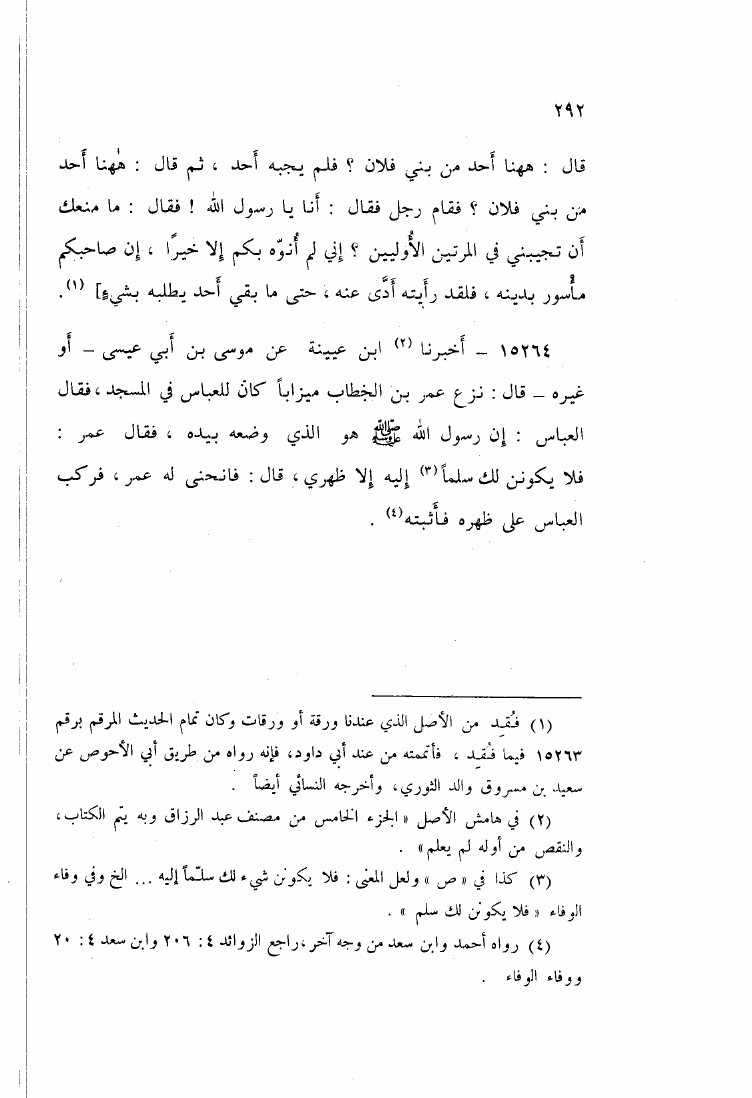 ٢٩٢
قال : ههنا أحد من بني فلان ؟ فلم يجبه أحد ، ثم قال : هٰهنا أحد
من بني فلان ؟ فقام رجل فقال : أنا يا رسول الله ! فقال : ما منعك
أن تجيبني في المرتين الأُوليين ؟ إني لم أُنوّه بكم إلا خيرًا ، إن صاحبكم
مأسور بدينه ، فلقد رأيته أدَّى عنه ، حتى ما بقي أحد يطلبه بشيءٍ] (١).
١٥٢٦٤ – أخبرنا (٢) ابن عيينة عن موسى بن أبي عيسى – أو
غيره – قال : نزع عمر بن الخطاب ميزاباً كان للعباس في المسجد ، فقال
العباس : إن رسول الله ﷺ هو الذي وضعه بيده ، فقال عمر :
فلا يكونن لك سلماً (٣) إليه إلا ظهري ، قال : فانحنى له عمر ، فركب
العباس على ظهره فأثبته (٤) .
(١) فُقِد من الأصل الذي عندنا ورقة أو ورقات وكان تمام الحديث المرقم برقم
١٥٢٦٣ فيما فُقِد ، فأتممته من عند أبي داود، فإنه رواه من طريق أبي الأحوص عن
سعيد بن مسروق والد الثوري، وأخرجه النسائي أيضاً .
(٢) في هامش الأصل « الجزء الخامس من مصنف عبد الرزاق وبه يتم الكتاب،
والنقص من أوله لم يعلم» .
(٣) كذا في « ص » ولعل المعنى : فلا يكونن شيء لك سلّماً إليه ... الخ وفي وفاء
الوفاء « فلا يكونن لك سلم » .
(٤) رواه أحمد وابن سعد من وجه آخر ،راجع الزوائد ٤ : ٢٠٦ وابن سعد ٤ : ٢٠
ووفاء الوفاء .